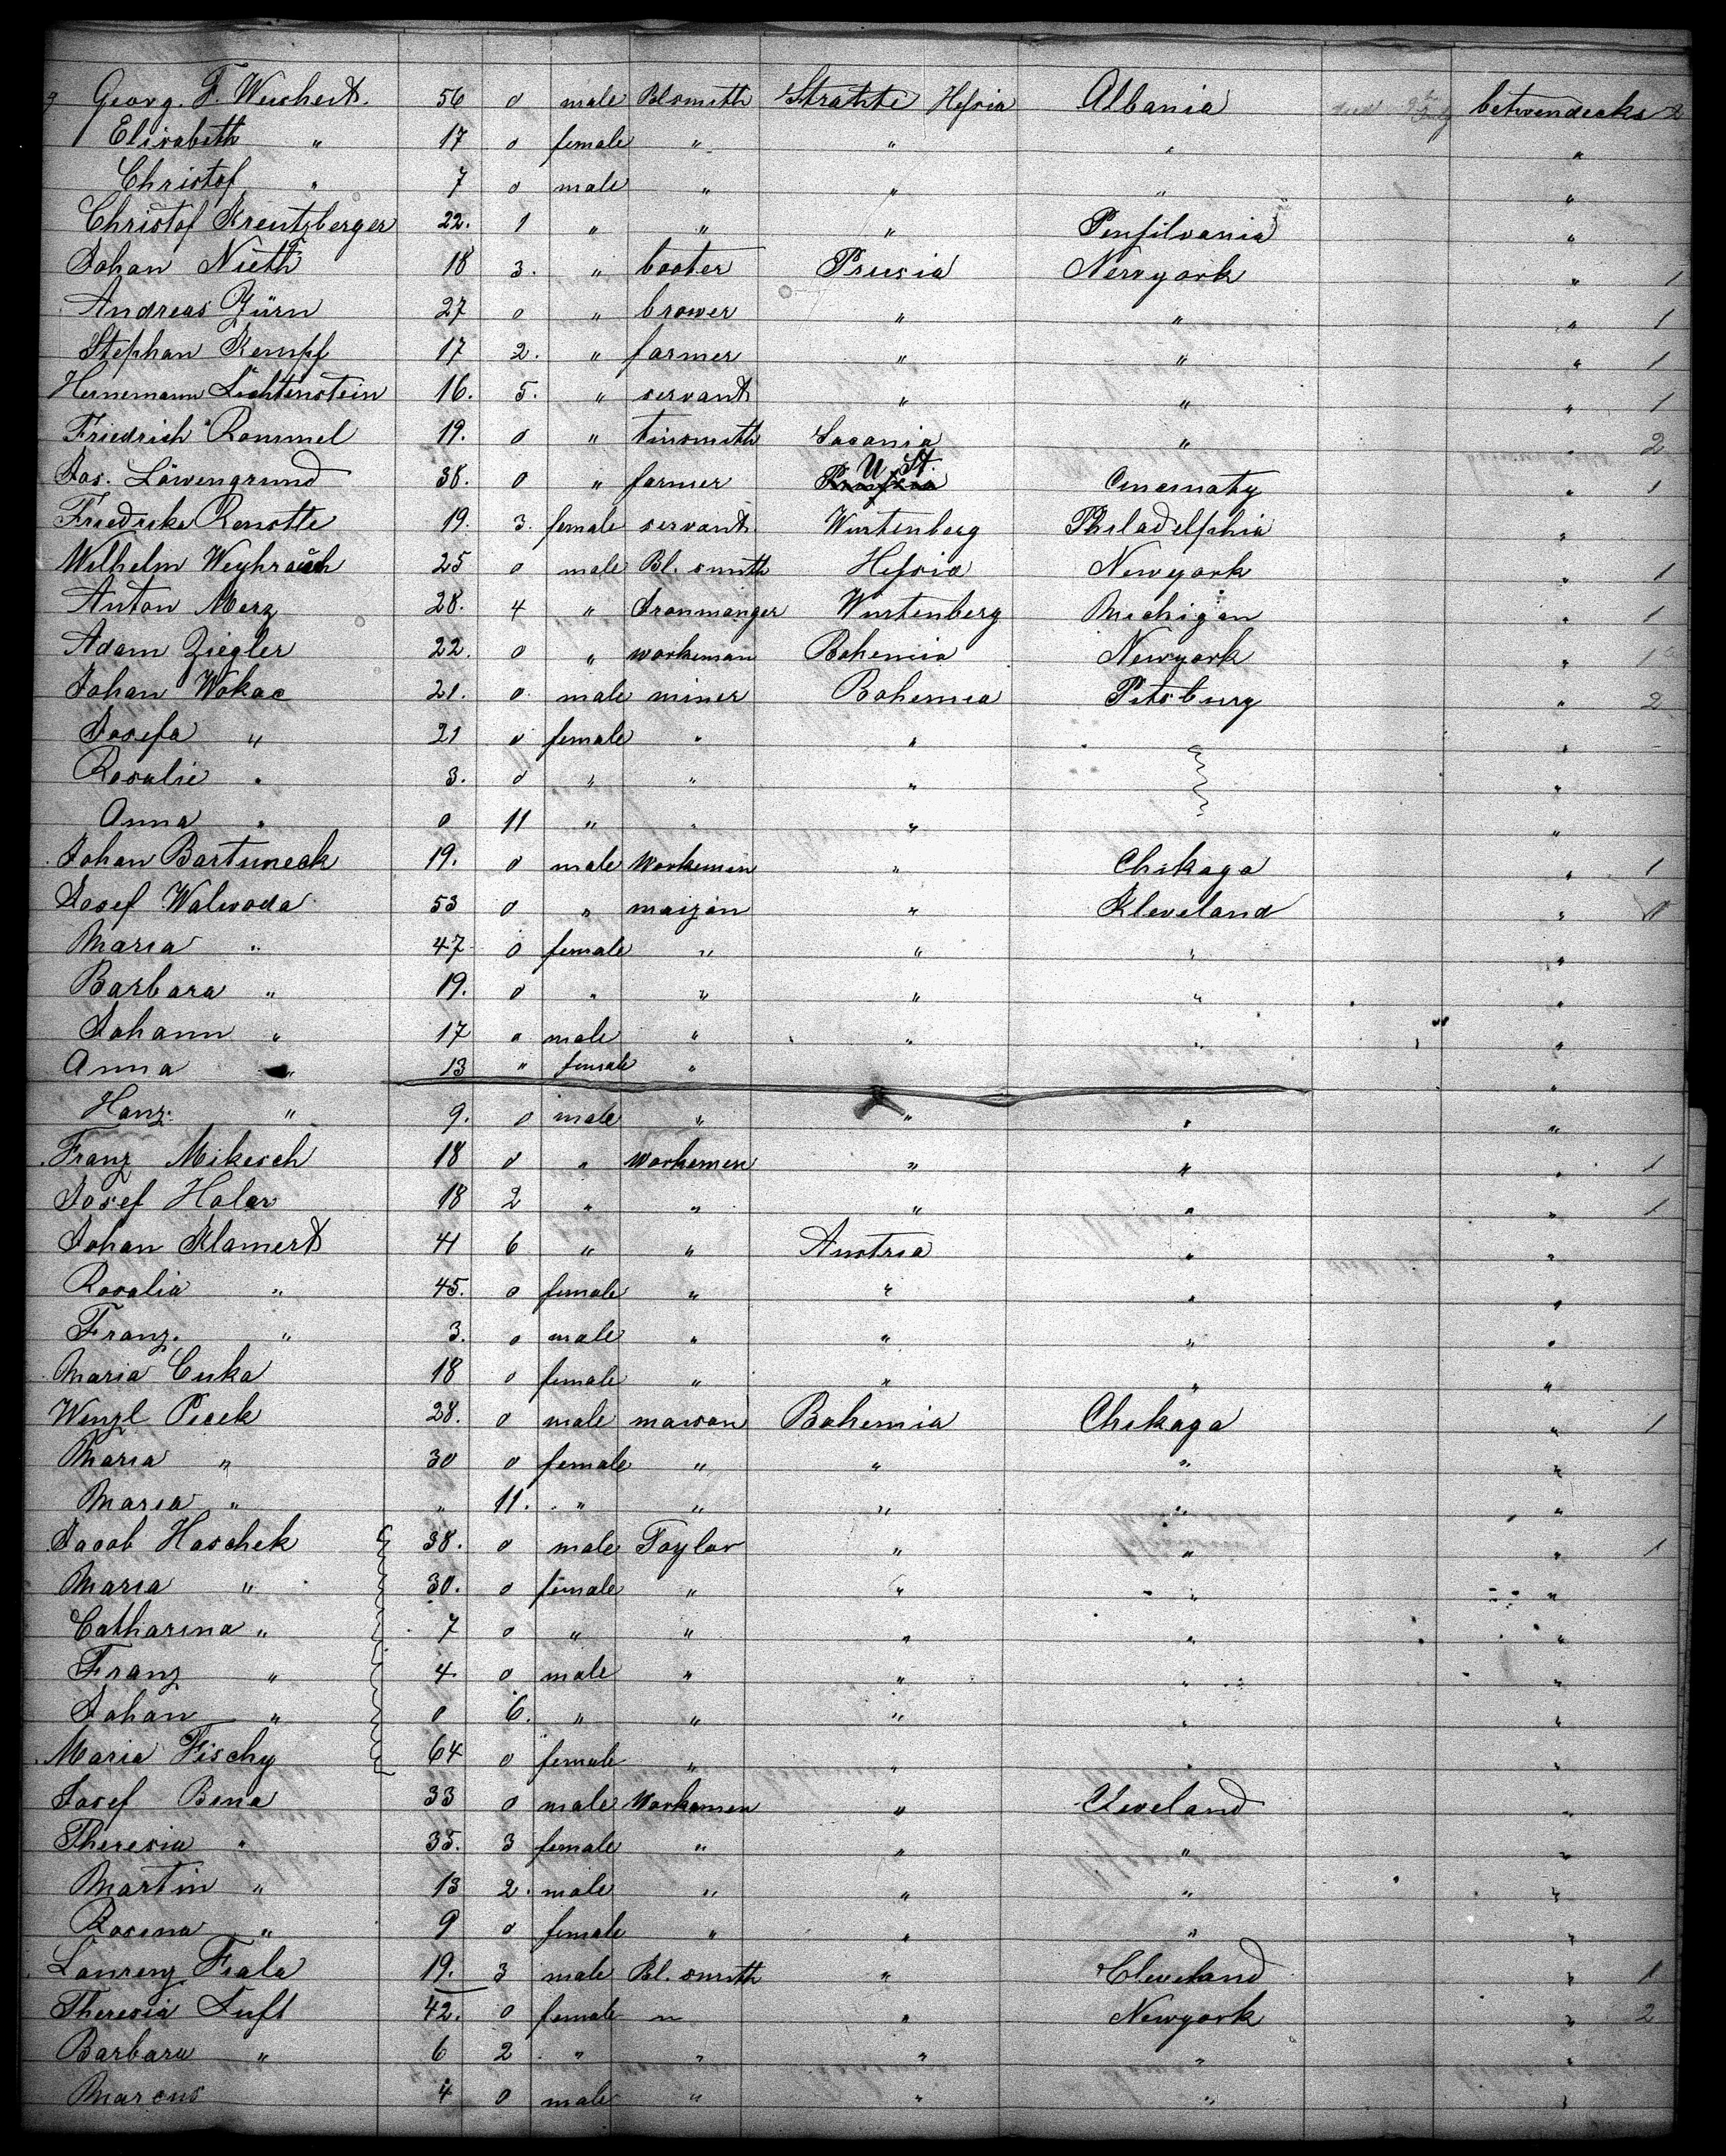 Georg. F. Weichert. 56 0 male Blsmith Hessia Albania betwendecks 2
Elisabeth " 17 0 female " " " "
Christof " 7 0 male " " " "
Christof Kreutzberger 22. 1 " " " Pensilvania "
Johan Nieth 18 3. " booter Prusia Newyork " 1
Andreas Zürn 27 0 " brower " " " 1
Stephan Kempf 17 2. " farmer " " " 1
Heinemann Lichtenstein 16. 5. " servant " " " 1
Friedrich Rommel 19. 0 " tinsmith Saxonia " " 2
Jos. Löwengrund 38. 0 " farmer U St. Cincinnaty " 1
Friedrike Renotte 19. 3. female servant Wurtenberg Philadelphia "
Wilhelm Weyhrauch 25 0 male Bl. smith Hessia Newyork " 1
Anton Merz 28. 4 " Ironmanger Wurtenberg Michigan " 1
Adam Ziegler 22. 0 " workeman Bohemia Newyork " 1
Johan Wokac 21. 0. male miner Bohemia Pitsburg " 2
Josefa " 21 0 female " " "
Rosalie " 3. 0 " " " "
Anna " 0 11 " " " "
Johan Bartuneck 19. 0 male Workeman " Chikago " 1
Josef Walwoda 53 0 " maizon " Kleveland "
Maria " 47 0 female " " " "
Barbara " 19. 0 " " " " "
Johann " 17 0 male " " " "
Anna " 13 " female " "
Hanz. " 9. 0 male " " " "
Franz Mikesch 18 0 " Workemen " " " 1
Josef Holar 18 2 " " " " " 1
Johan Klamert 41 6 " " Austria " "
Rosalia " 45. 0 female " " " "
Franz. " 3. 0 male " " " "
Maria Cuka 18 0 female " " " "
Wenzl Pecek 28. 0 male mason Bohemia Chikago " 1
Maria " 30 0 female " " " "
Maria " " 11. " " " " "
Jacob Haschek 38. 0 male Taylor " " " 1
Maria " 30. 0 female " " " "
Catharina " 7 0 " " " " "
Franz " 4. 0 male " " " "
Johan " 0 6. " " " " "
Maria Fischy 64 0 female " " " "
Josef Bena 33 0 male Workemen " Cleveland "
Theresia " 35. 3 female " " " "
Martin " 13 2. male " " " "
Rosina " 9 0 female " " " "
Lawrenz Fiala 19. 3 male Bl. smith " Cleveland " 1
Theresia Luft 42. 0 female " " Newyork " 2
Barbara " 6 2 " " " " "
Marcus 4 0 male " " " "